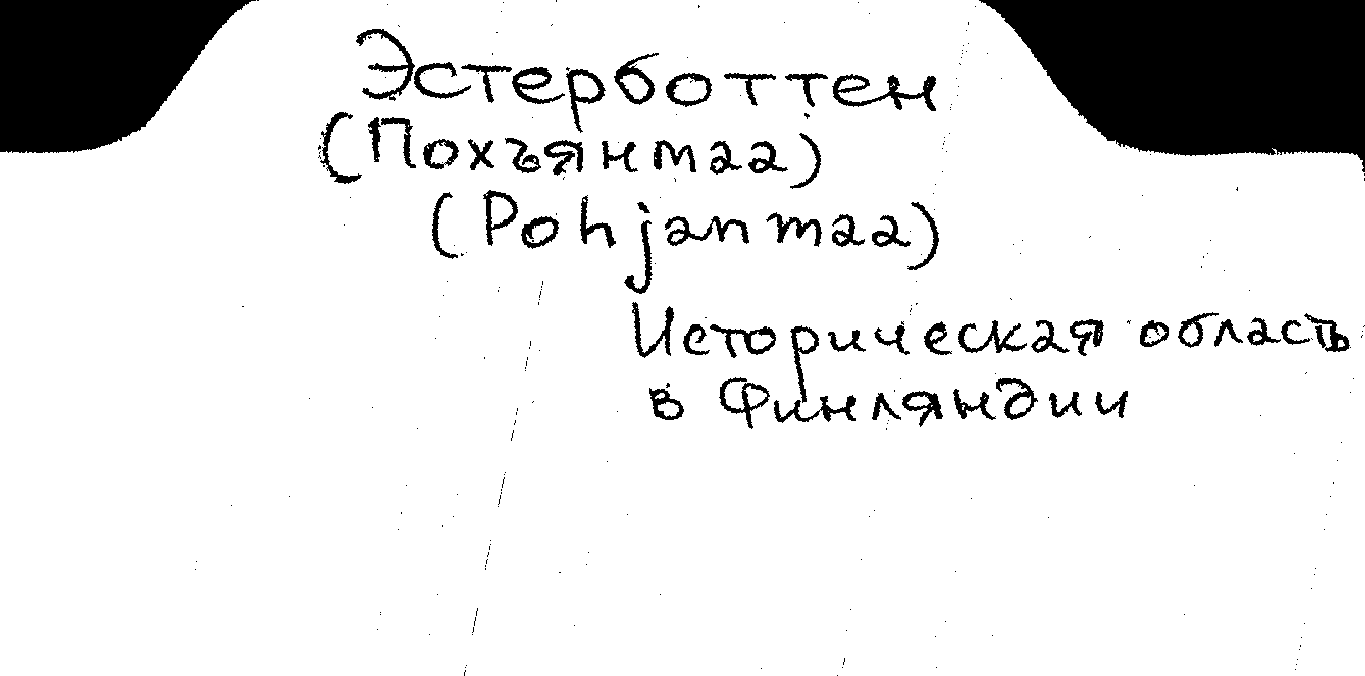 Эстерботтен
(Похъянмаа)
(Pohjanmaa)
Историческая область
в Финляндии